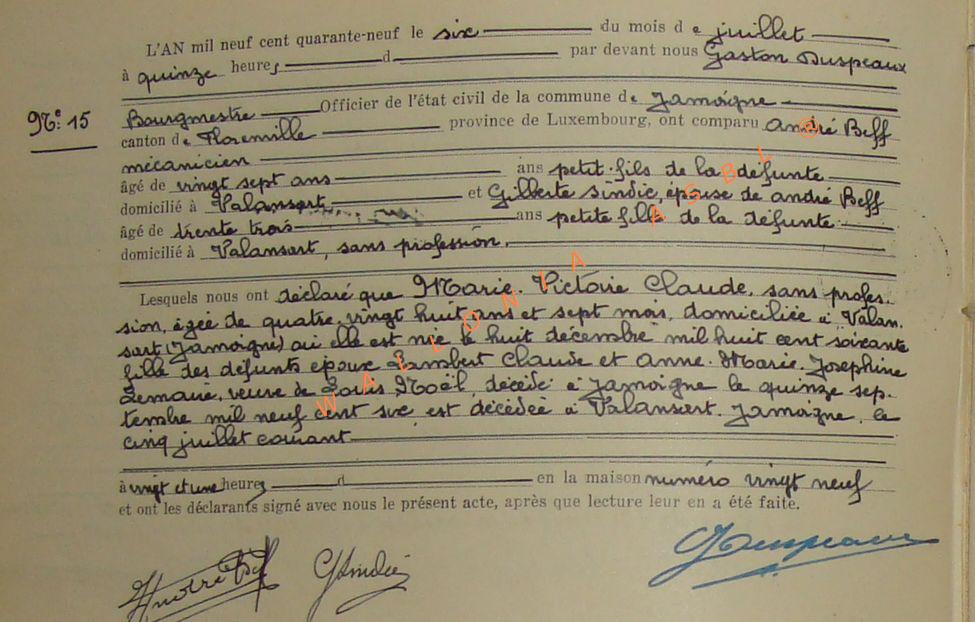 L'AN mil neuf cent quarante-neuf le six du mois de juillet
à quinze heures d par devant nous Gaston Duspeaux
N° 15
Bourgmestre Officier de l'état civil de la commune de Jamoigne
canton de Florenville province de Luxembourg, ont comparu André Beff
mécanicien
âgé de vingt sept ans ans petit-fils de la défunte
domicilié à Valansart et Gilberte Sindic, épouse de andré Beff
âgé de trente trois ans petite fille de la défunte
domicilié à Valansart, sans profession.
Lesquels nous ont déclaré que Marie-Victoire Claude, sans profes-
sion, âgée de quatre-vingt huit ans et sept mois, domiciliée à Valan-
sart (Jamoigne) où elle est née le huit décembre mil huit cent soixante
fille des défunts époux Lambert Claude et Anne-Marie-Josephine
Lemaire, veuve de Louis Noël, décédé à Jamoigne le quinze sep-
tembre mil neuf cent six est décédée à Valansart-Jamoigne, le
cinq juillet courant
à vingt et une heures d en la maison numéro vingt neuf
et ont les déclarants signé avec nous le présent acte, après que lecture leur en a été faite.
André Beff GSindic GDuspeaux
WALLONIA ASBL @